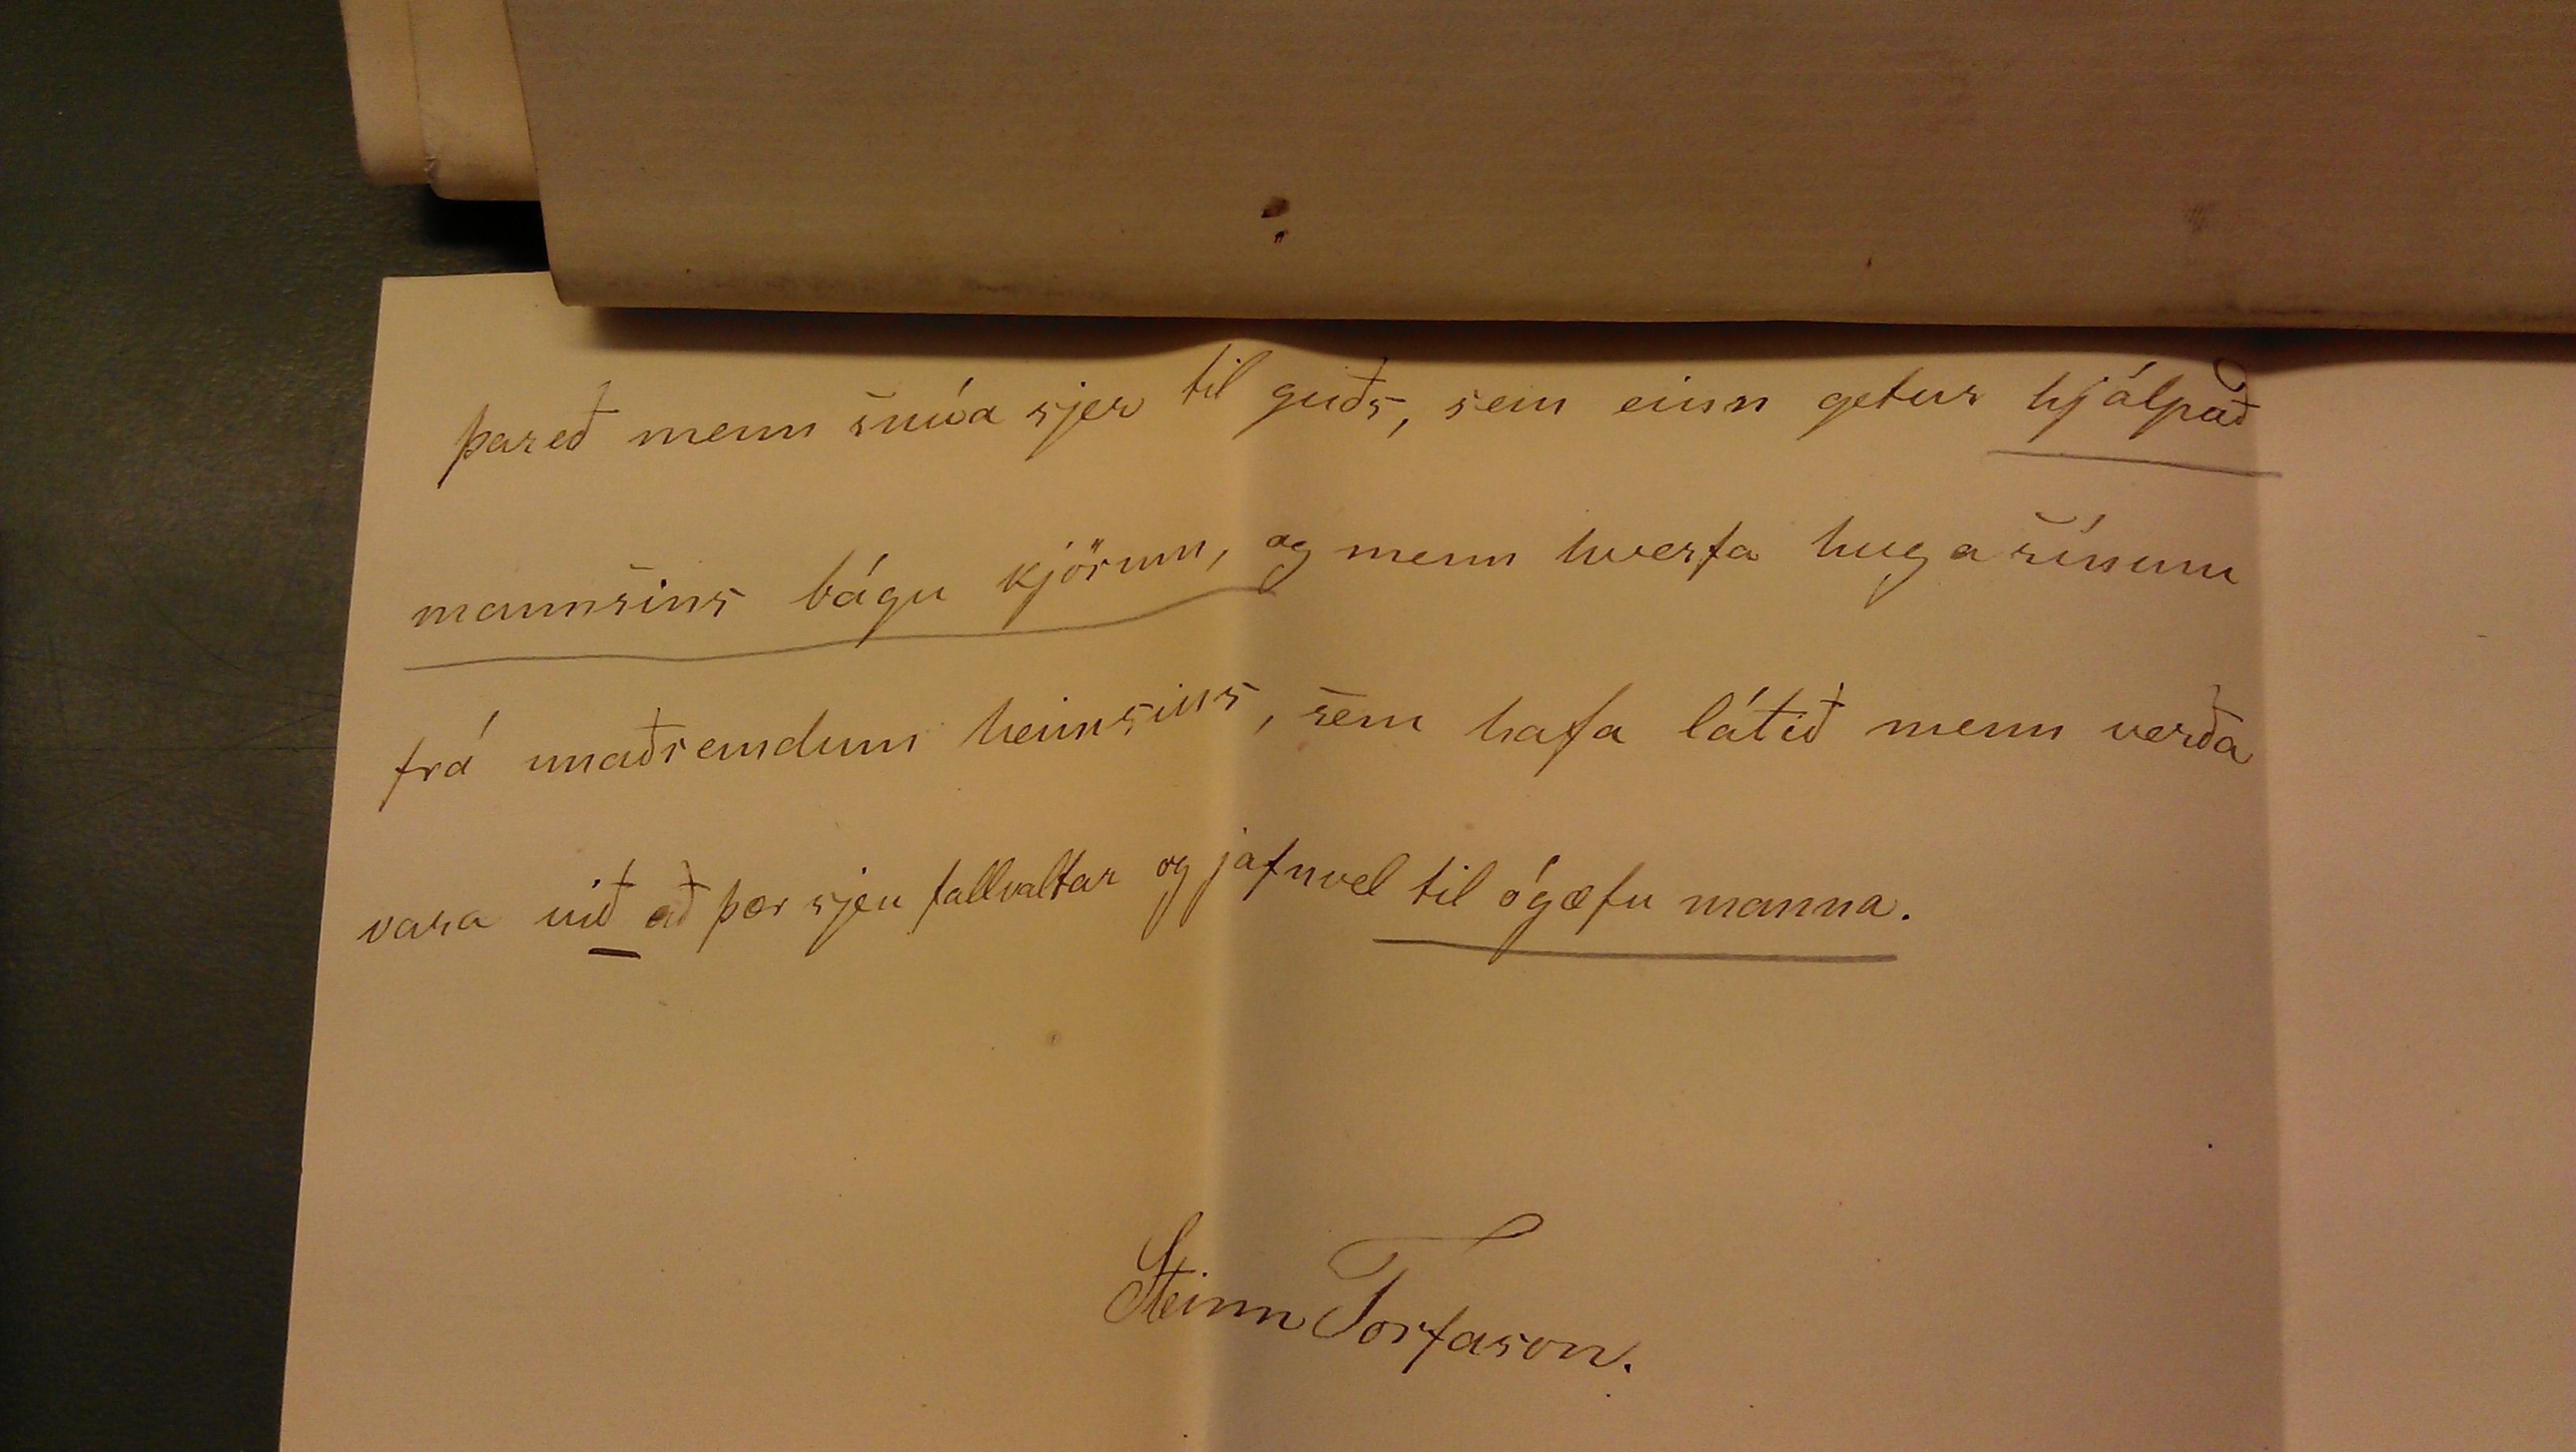 þareð menn snúa sjer til guðs, sem einn getur hjálpað
mannsins bágu kjörum, og menn hverfa huga sínum
frá unaðsemdum heimsins, sem hafa látið menn verða
vara við að þær sjeu fallvaltar og jafnvel til ógæfu manna.
Steinn Torfason.